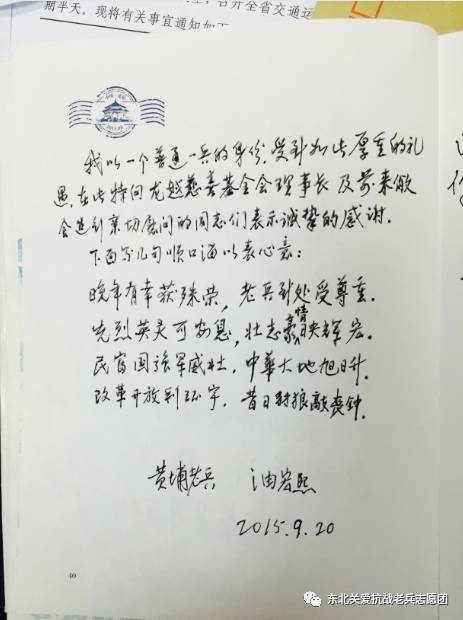 期半天。现将有关事宜通知如下
召开全省交通运
我以一个普通一兵的身份,受到如此厚重的礼
遇,在此特向龙越慈善基金会理事长及前来做
会送到亲切慰问的同志们表示诚挚的感谢。
下面写几句顺口溜以表心意:
晚年有幸获殊荣,老兵到处受尊重。
先烈英灵可安息,壮志豪情映辉宏。
民富国强军威壮,中華大地旭日升。
改革开放到环宇,昔日豺狼敲丧钟。
黄埔老兵 油宏熙
2015.9.20
40
东北关爱抗战老兵志愿团